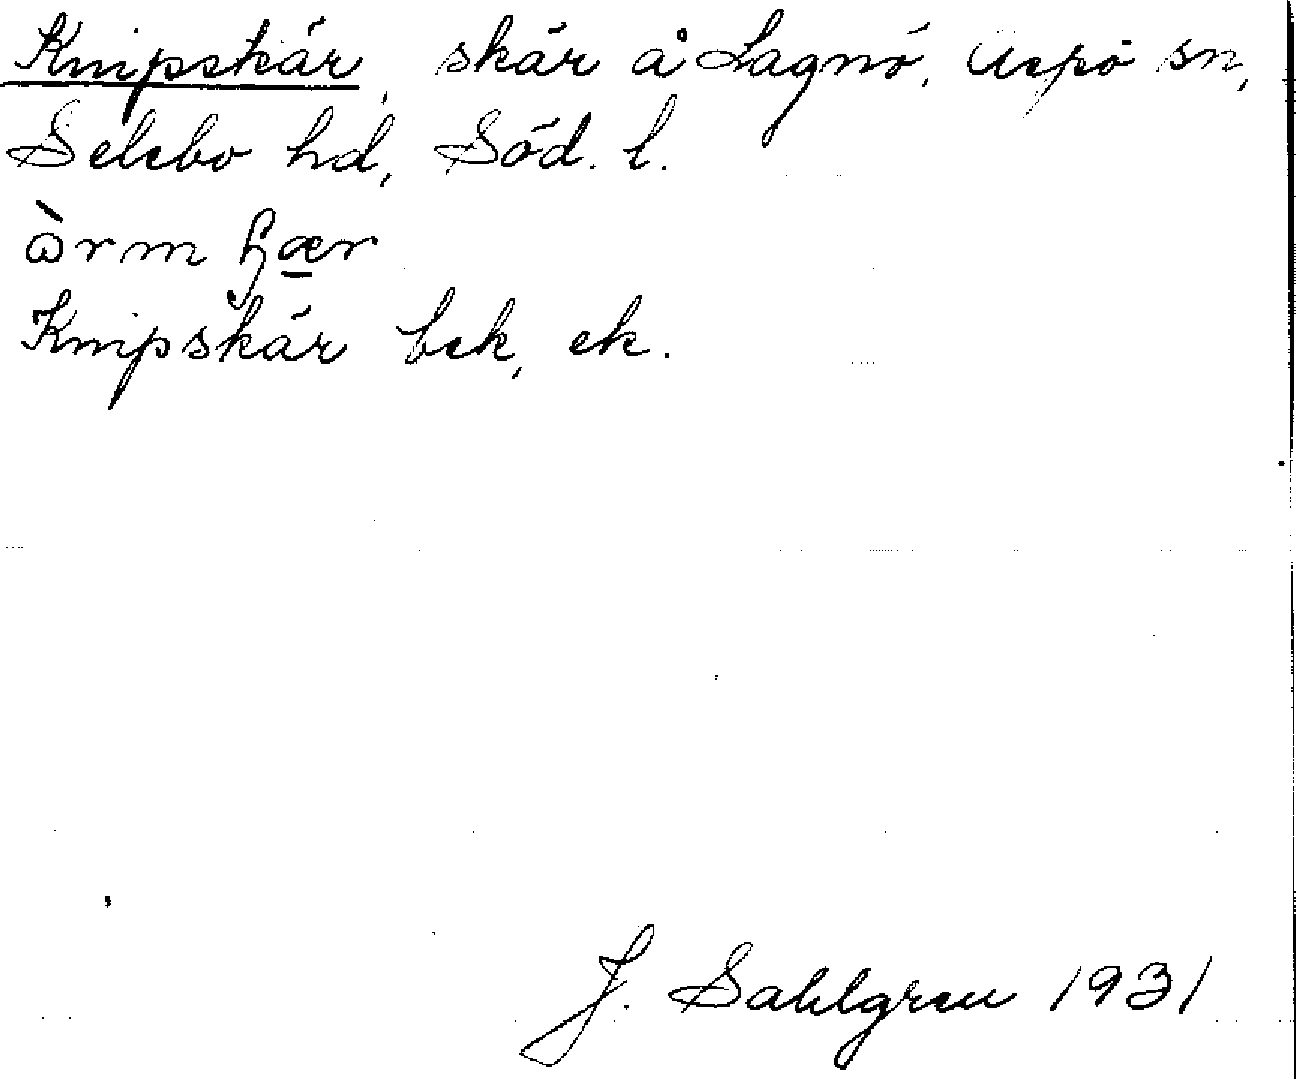 Knipskär, skär å Lagnö, Aspö sn,
Selebo hd, Söd. l.
ormʃær
Knipskär bek, ek.
J. Sahlgren 1931